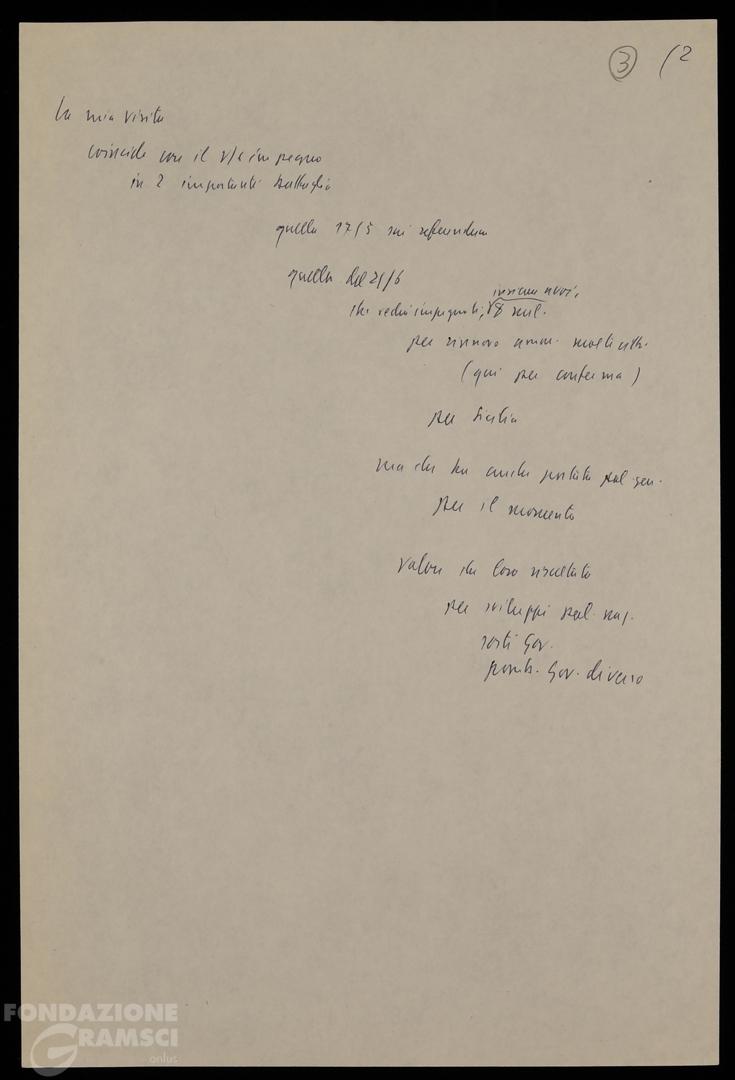 3 (2
La mia visita
coincide con il v/s impegno
in 2 importanti battaglie
quella 17/5 sui referendum
quella del 21/6
insieme a voi,
che vedrà impegnati, 8 mil.
per rinnovo amm. molti altri
(qui per conferma)
per Sicilia
ma che ha anche portata pol. gen.
per il momento
valore che loro risultato
per sviluppi pol. naz.
sorti Gov.
possib. Gov. diverso
FONDAZIONE
GRAMSCI
onlus